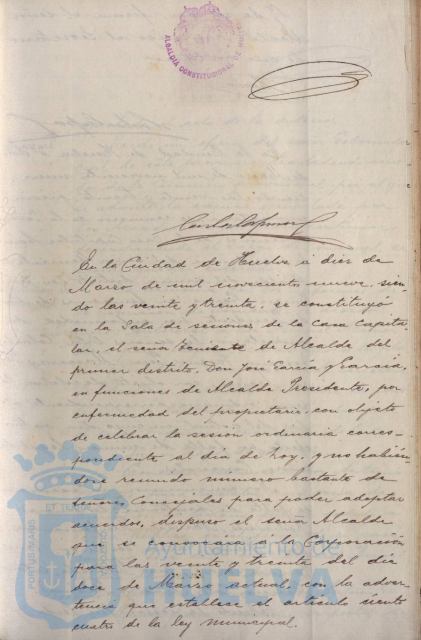 ALCALDIA CONSTITUCIONAL DE HUELVA
En la Ciudad de Huelva á diez de
Marzo de mil novecientos nueve, sien
do las veinte y treinta, se constituyó
en la Sala de sesiones de la Casa Capitu
lar, el señor Teniente de Alcalde del
primer distrito, Don José García y García,
en funciones de Alcalde Presidente, por
enfermedad del propietario, con objeto
de celebrar la sesión ordinaria corres-
pondiente al día de hoy, y no habién
dose reunido número bastante de
señores Concejales para poder adoptar
acuerdos, dispuso el señor Alcalde
que se convocara a la Corporación
para las veinte y treinta del día
doce de Marzo actual, con la adver-
tencia que establece el artículo ciento
cuatro de la ley municipal.
Ayuntamiento de
HUELVA
PORTUS MARIS
ET TERRAE
CUSTODIA